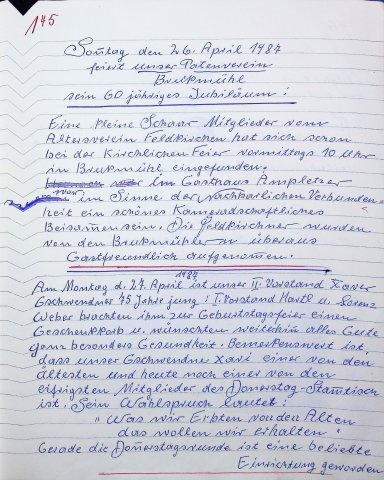 145
Sontag den 26. April 1987
feiert unser Patenverein
Bruckmühl
sein 60 jähriges Jubiläum!
Eine kleine Schaar Mitglieder vom
Altersverein Feldkirchen hat sich schon
bei der Kirchlichen Feier vormittags 10 Uhr
in Bruckmühl eingefunden.
Im Gasthaus Ampletzer
war im Sinne der nachbarlichen Verbunden-
heit ein schönes Kameradschaftliches
Beisamensein. Die Feldkirchner wurden
von den Bruckmühlern überaus
Gastfreundlich aufgenomen.
1987
Am Montag d. 27. April ist unser II. Vorstand Xaver
Gschwendner 75 Jahre jung! I. Vorstand Hartl u. Lorenz
Weber brachten ihm zur Geburtstagsfeier einen
Geschenkkorb u. wünschten weiterhin alles Gute
ganz besonders Gesundheit. Bemerkenswert ist
dass unser Gschwendner Xavi einer von den
ältesten und heute noch einer von den
eifrigsten Mitglieder des Donerstag-Stamtisch
ist. Sein Wahlspruch lautet:
"Was wir Erbten von den Alten
das wollen wir erhalten"
Gerade die Donerstagsrunde ist eine beliebte
Einrichtung geworden